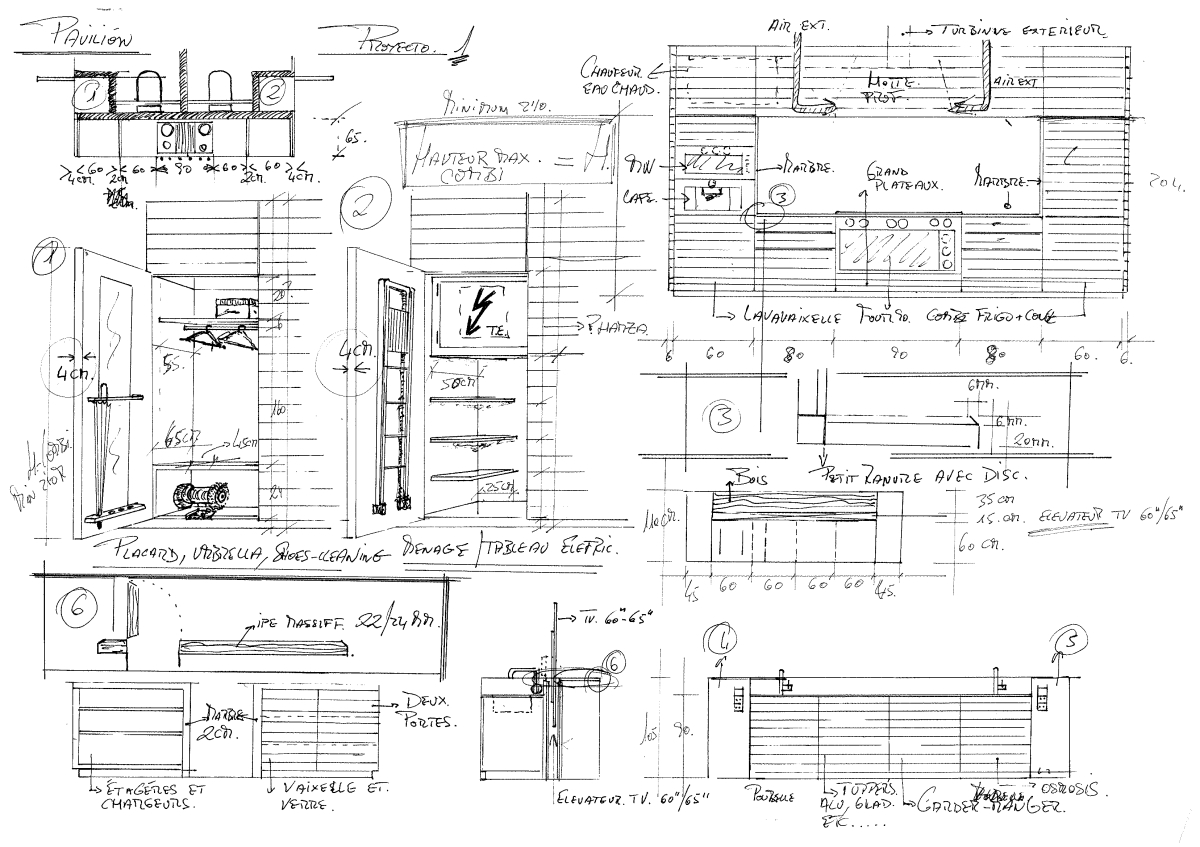 PAVILIÓN
PROYECTO. 1
1
2
65.
<60
<60
90
<60
<60
4cm.
2cm
2cm.
4cm.
MINIMUM 210.
HAUTEUR MAX. = H.
COMBI
AIR EXT.
TURBINNE EXTERIEUR
CHAUFEUR
EAU CHAUD.
HOTTE
PROF.
AIR EXT
MW
CAFE.
MARBRE.
3
GRAND
PLATEAUX.
MARBRE.
204.
LAVAVAIXELLE
FOUR 90.
FRIGO + CONG
6
60
80
90
80
60.
6.
1
4cm.
55.
20
65cm
45cm
160
24
2
4cm.
T.E.
50cm
25cm
PLACARD, UMBRELLA, SHOES-CLEANING
MENAGE / TABLEAU ELETRIC.
3
6mm.
6mm.
20mm.
PETIT RANURE AVEC DISC.
BOIS
110cm.
35cm
15cm.
60cm.
ELEVATEUR TV 60"/65"
45
60
60
60
60
45.
6
IPE MASSIFF. 22/24mm.
MARBRE
2cm.
DEUX
PORTES.
ÉTAGÈRES ET
CHARGEURS.
VAIXELLE ET
VERRE.
TV. 60"-65"
6
ELEVATEUR. TV. 60"/65"
4
5
105
90.
POUBELLE
TUPPERS
ALU, GLAD.
ETC.....
GARDER-MANGER.
OSMOSIS.